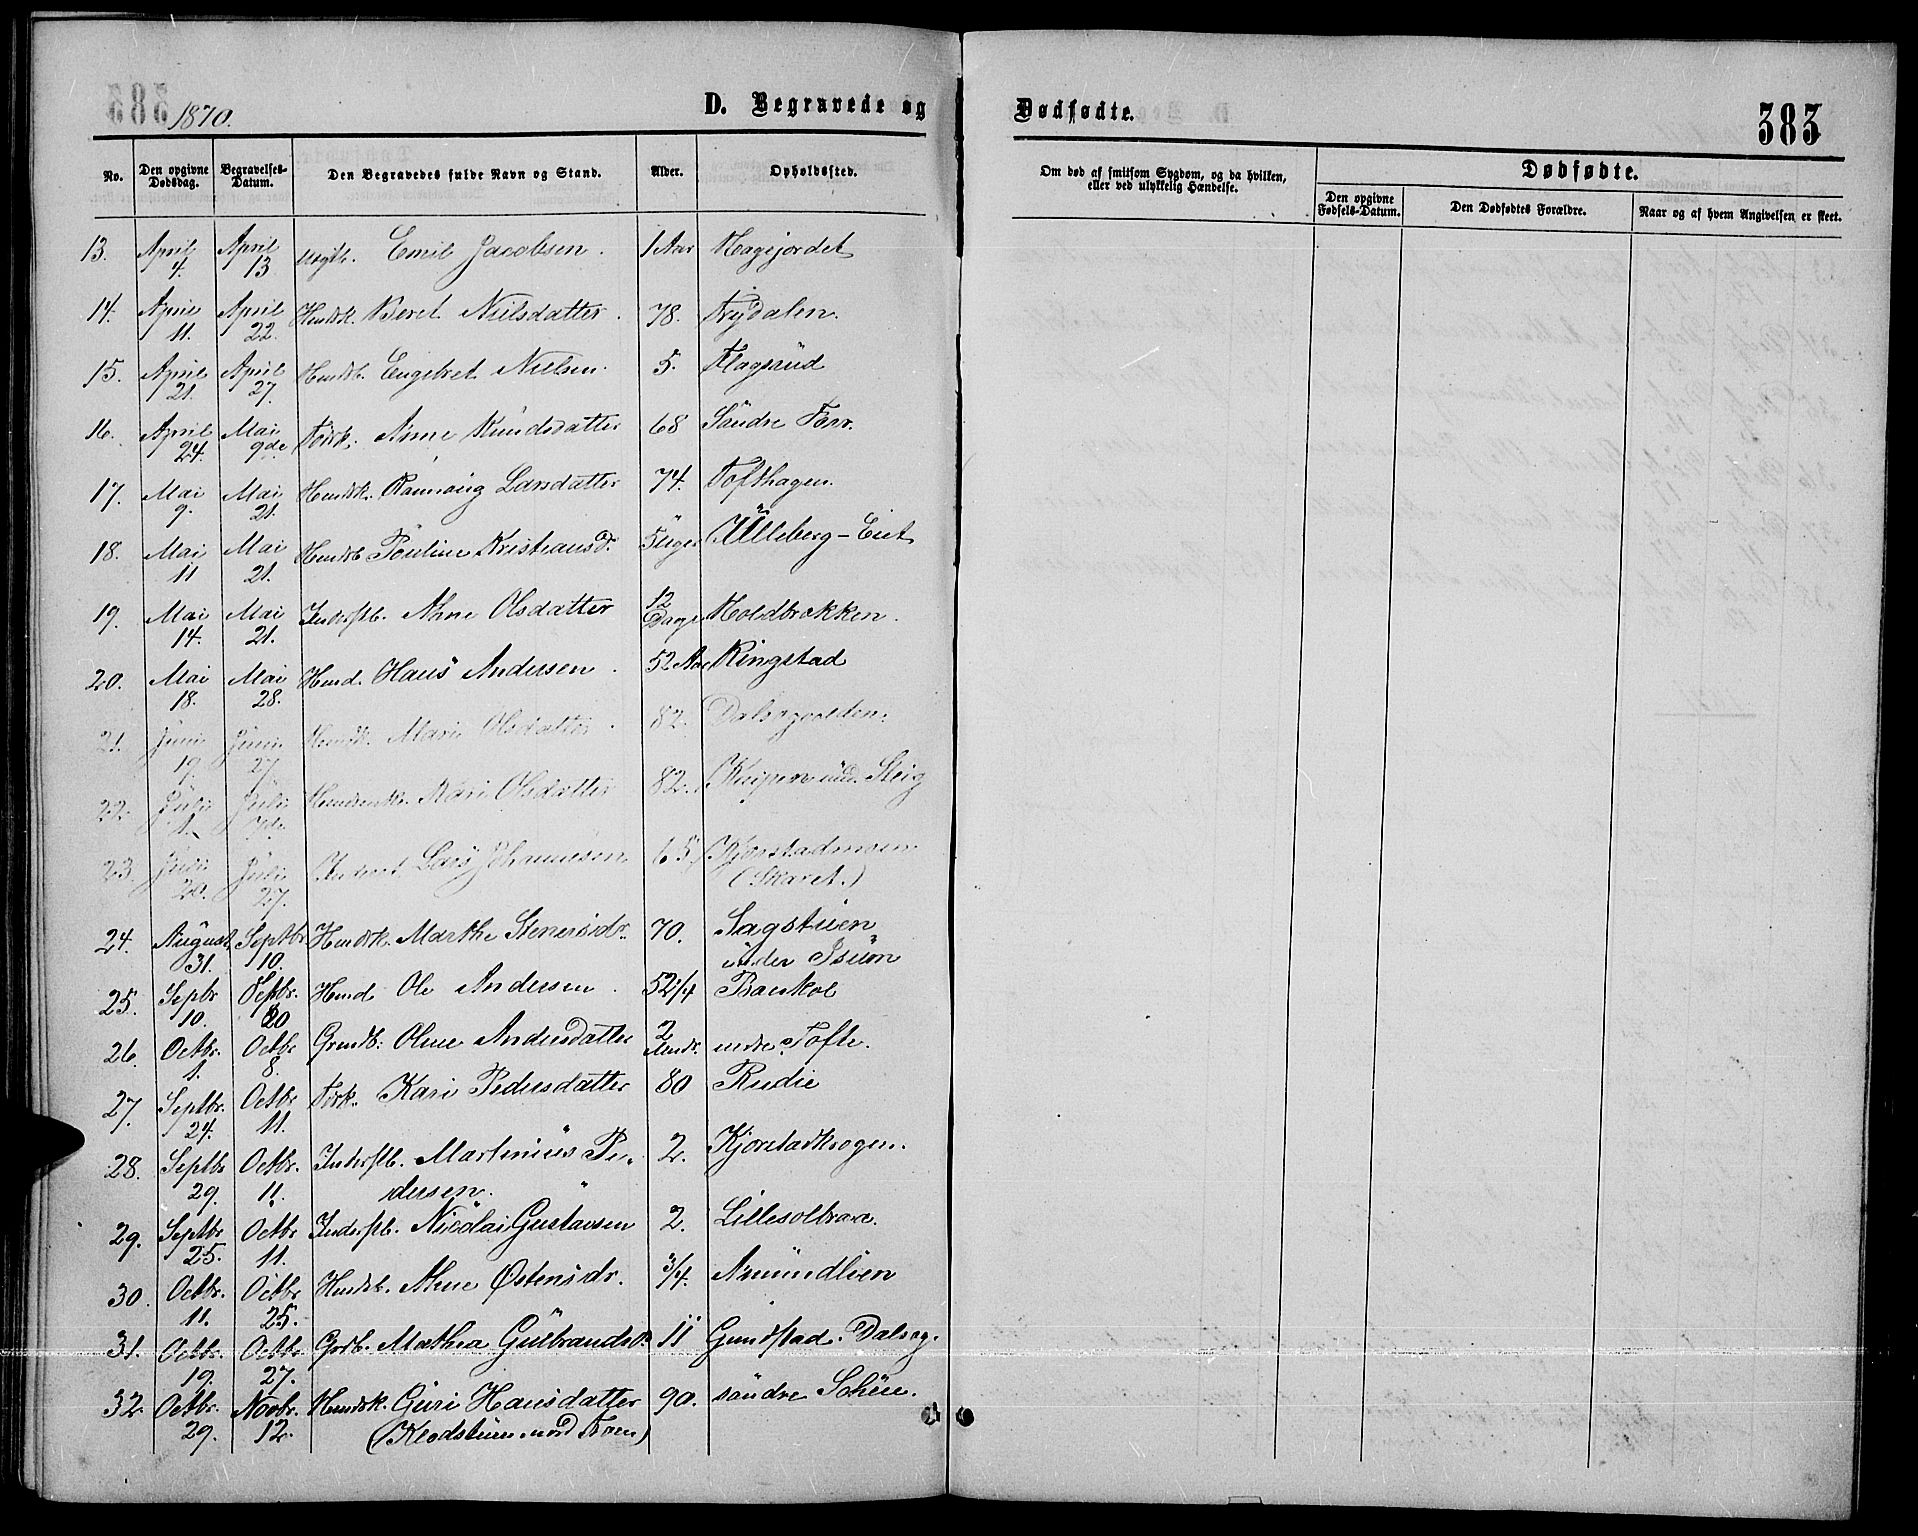 1870.
D. Begravede og Dødfødte.
383
No. Den opgivne Dødsdag. Begravelses-Datum. Den Begravedes fulde Navn og Stand. Alder. Opholdssted.
Om død af smitsom Sygdom, og da hvilken, eller ved ulykkelig Hændelse.
Dødfødte.
Den opgivne Fødsels-Datum. Den Dødfødtes Forældre. Naar og af hvem Angivelsen er skeet.
13. April 4. April 13 Emil Jacobsen. 1 Aar Hagejordet
14. April 11. April 22. Hmdsk. Beret Nielsdatter. 78. Frydalen.
15. April 21. April 27. Hmdsb. Engebret Nielsen. 5. Flagsrud
16. April 24. Mai 9de Førk. Anne Knudsdatter 68 Søndre Forr.
17. Mai 9. Mai 21. Hmdsk. Rannoug Larsdatter 74. Tofthagen.
18. Mai 11 Mai 21. Hmdsb Pouline Kristiansd. 5 Uger Ulleberg-Eiet
19. Mai 14. Mai 21. Inderstb. Ahne Olsdatter 12 Dage Holdbrækken.
20. Mai 18. Mai 28. Hmd. Hans Andersen. 52 Aar Ringstad
21. Juni 19. Juni 27 Hmdsk. Mari Olsdatter. 82.
22. Juli 1. Juli 7de Kari Olsdatter 82. Kneipen und. Steig
23. Juli 20. Juli 27. Inderst Lars Johannesen 65 Kjorstadmoen (Skaret.)
24. August 31. Septbr 10. Hmdsk. Marthe Stenersdr. 70. Sagstuen under Isum
25. Sepbr 10. Septbr. 20 Hmd Ole Andersen. 52 1/4 Baukol
26. Octbr. 1. Octbr 8. Grmdb. Oline Andersdatter 2 Mndr. nedre Tofte.
27. Septbr. 24. Octbr 11. Førk. Kari Pedersdatter 80 Rudie
28. Septbr 29. Octbr. 11. Inderstb. Martinius Pedersen. 2. Kjorstadkrogen.
29. Septbr 25. Octbr 11. Inderstb. Nicolai Gustavsen 2. Lillesolbraa.
30. Octbr. 11. Octbr 25. Hmdsb. Ahne Østensdr. 3/4. Amundlien
31. Octbr. 19. Octbr 27. Grdb. Mathea Gulbrandsd. 11 Gundstad. Dalseg.
32. Octbr. 29. Novbr. 12. Hmdsk. Guri Hansdatter 90. søndre